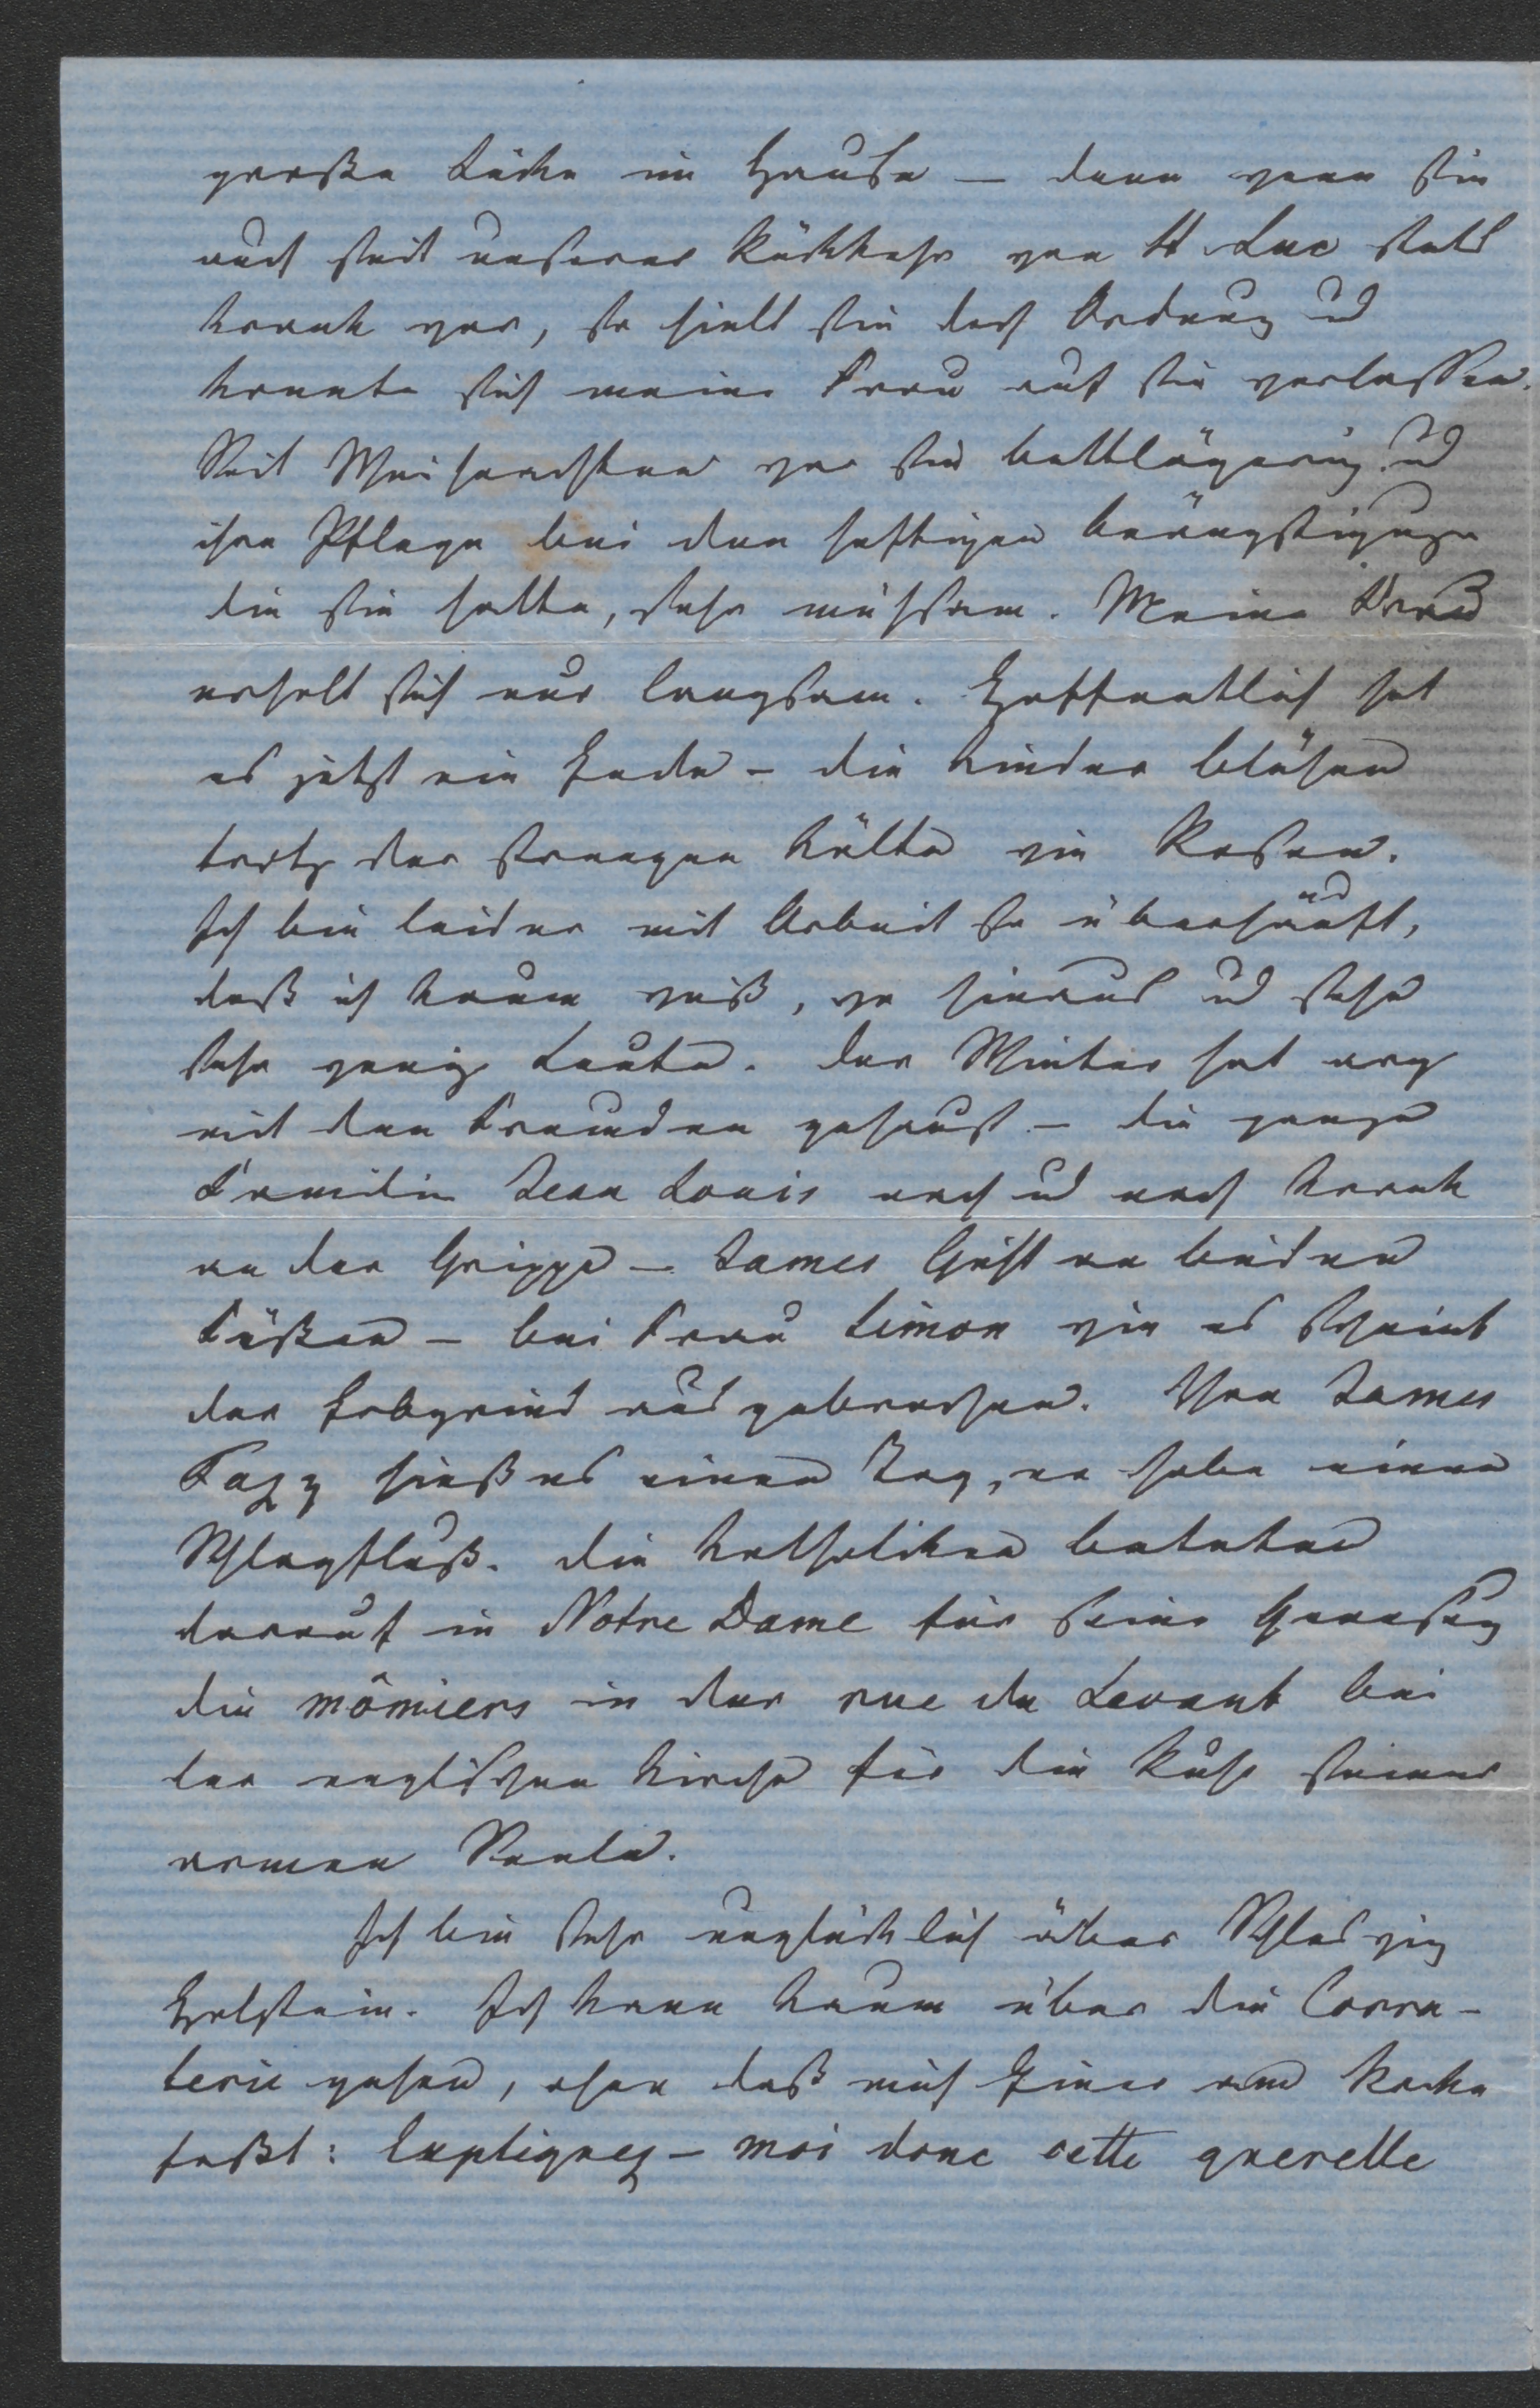 große Lücke im Hause — denn wenn sie
auch seit unserer Rückkehr von St Luc stets
krank war, so hielt sie doch Ordnung ud
konnte sich meine Frau auf sie verlassen.
Seit Weihnachten war sie bettlägerig ud
ihre Pflege bei den heftigen Beängstigungen
die sie hatte, sehr mühsam. Meine Frau
erholt sich nur langsam. Hoffentlich hat
es jetzt ein Ende – die Kinder blühen
trotz der strengen Kälte wie Rosen.
Ich bin leider mit Arbeit so überhäuft,
daß ich kaum weiß, wo hinaus ud sehe
sehr wenig Leute. Der Winter hat arg
mit den Freunden gehaust – die ganze
Familie Jean Louis nach ud nach krank
an der Grippe – James Gicht an beiden
Füßen – bei Frau Simon wie es scheint
der Erbgrind ausgebrochen. Von James
Fazy hieß es einen Tag, er habe einen
Schlagfluß. Die Katholiken beteten
darauf in Notre Dame für seine Genesung
die mômiers in der rue du Levant bei
der englischen Kirche für die Ruhe seiner
armen Seele.
Ich bin sehr unglücklich über Schleswig
Holstein. Ich kann kaum über die Corra-
terie gehen, ohne daß mich Einer am Rocke
faßt: Expliquez-moi donc cette querelle